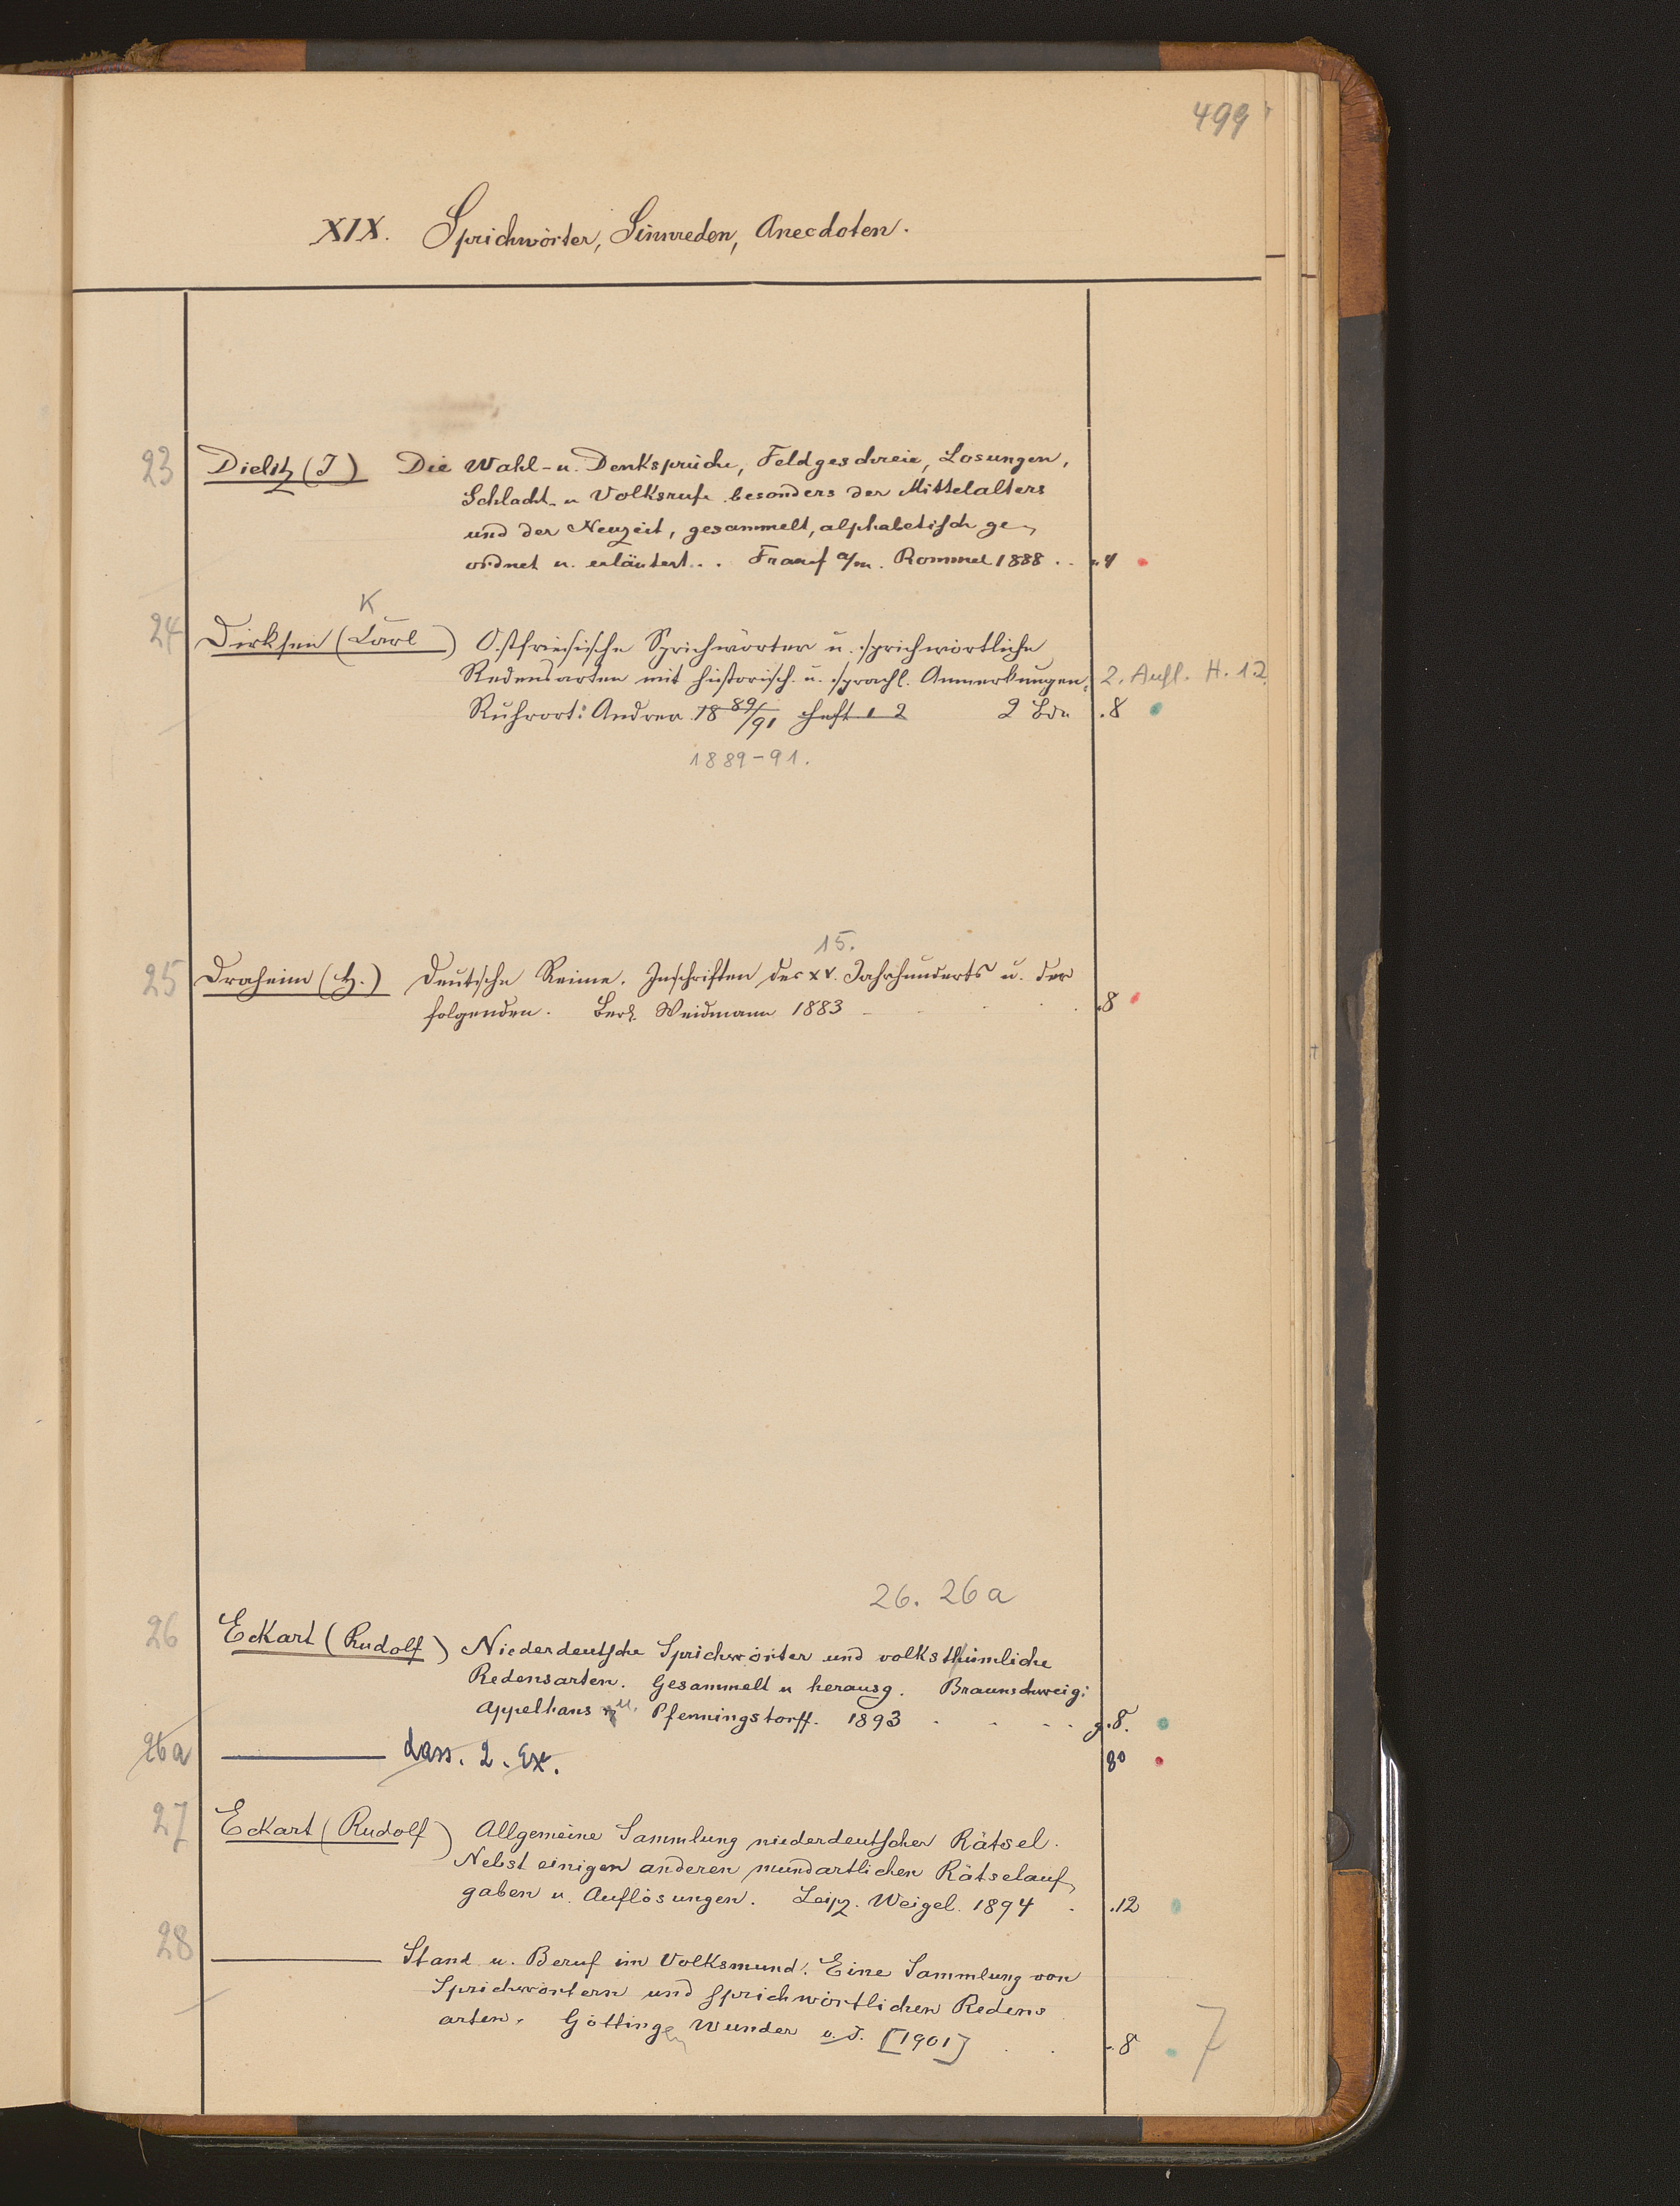 499
XIX. Sprichwörter, Sinnreden, Anecdoten.
23 Dielitz (J) Die Wahl- u. Denksprüche, Feldgeschreie, Losungen,
Schlacht- u Volksrufe besonders der Mittelalters
und der Neuzeit, gesammelt, alphabetisch ge-
ordnet u. erläutert. . . Franf a/m. Rommel 1888 . . 4
K
24 Dirksen (Carl) Ostfriesische Sprichwörter u. sprichwörtliche
Redensarten mit historisch. u. sprachl. Anmerkungen. 2. Aufl. H. 1.2.
Ruhrort: Andreae 18 89/91 Heft 1 2 2 Bde .8
1889-91.
15.
25 Draheim (H.) Deutsche Reime. Inschriften des XV. Jahrhunderts u. der
folgenden. Berl. Weidmann 1883 . . . .8
26. 26a
26 Eckart (Rudolf) Niederdeutsche Sprichwörter und volksthümliche
Redensarten. Gesammelt u herausg. Braunschweig:
Appelhans u. Pfenningstorff. 1893 . . . . g.8.
26a ——— dass. 2. Ex. 8°
27 Eckart (Rudolf) Allgemeine Sammlung niederdeutscher Rätsel.
Nebst einigen anderen mundartlichen Rätselauf-
gaben u. Auflösungen. Leipz. Weigel. 1894 . .12
28 ——— Stand u. Beruf im Volksmund. Eine Sammlung von
Sprichwörtern und sprichwörtlichen Redens
arten. Göttingen Wunder o. J. [1901] . . .8
7